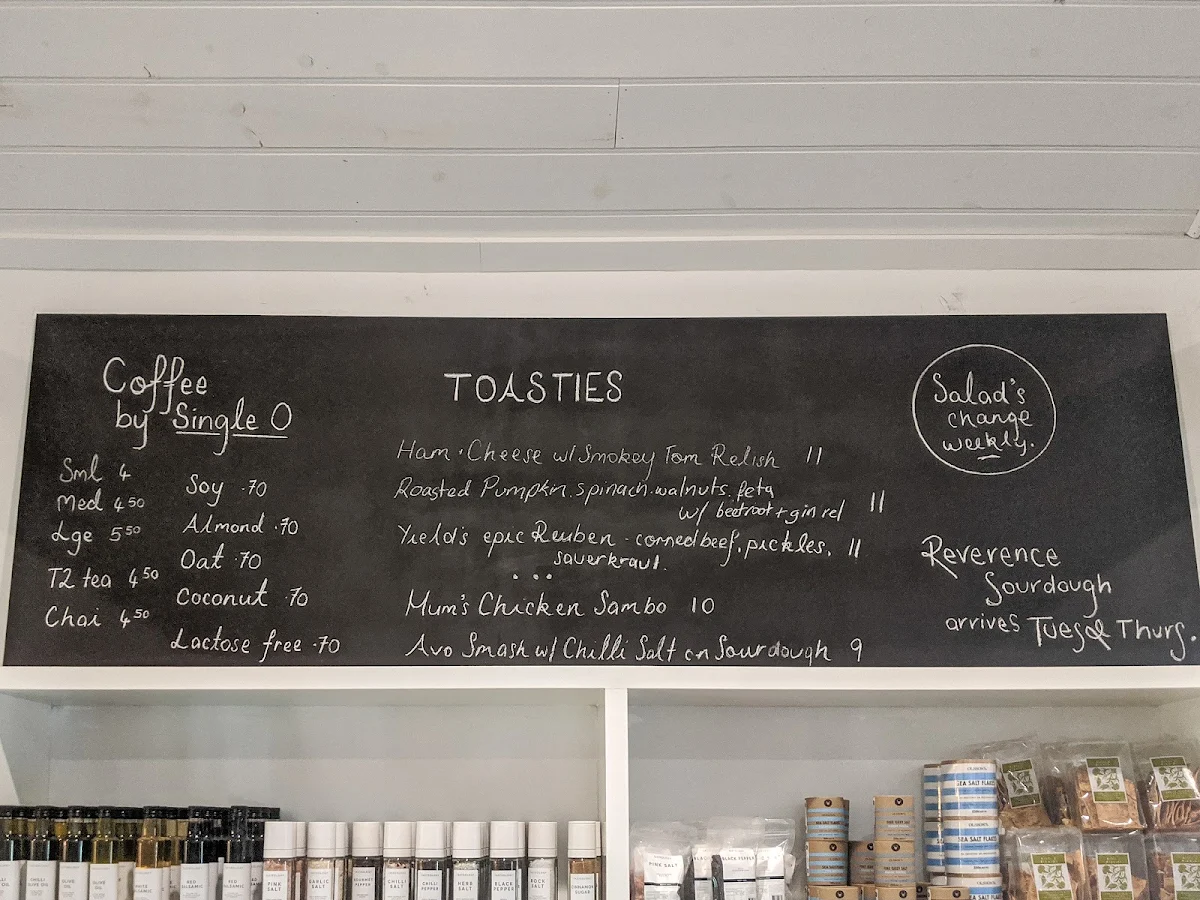 Coffee
by Single O
Sml 4
Med 4.50
Lge 5.50
T2 tea 4.50
Chai 4.50
Soy .70
Almond .70
Oat .70
Coconut .70
Lactose free .70
TOASTIES
Ham . Cheese w/ Smokey Tom Relish 11
Roasted Pumpkin. spinach. walnuts. feta
w/ beetroot + gin rel 11
Yield's epic Reuben - corned beef. pickles. 11
sauerkraut.
...
Mum's Chicken Sambo 10
Avo Smash w/ Chilli Salt on Sourdough 9
Salad's
change
weekly.
Reverence
Sourdough
arrives Tues & Thurs.
CHILLI
OLIVE OIL
OLIVE
OIL
RED
BALSAMIC
RED
BALSAMIC
PINK
SALT
GARLIC
SALT
GOURMET
PEPPER
CHILLI
SALT
CHILLI
PEPPER
HERB
SALT
BLACK
PEPPER
ROCK
SALT
CINNAMON
SUGAR
PINK SALT
BLACK PEPPER
SEA SALT FLAKES
SEA SALT FLAKES